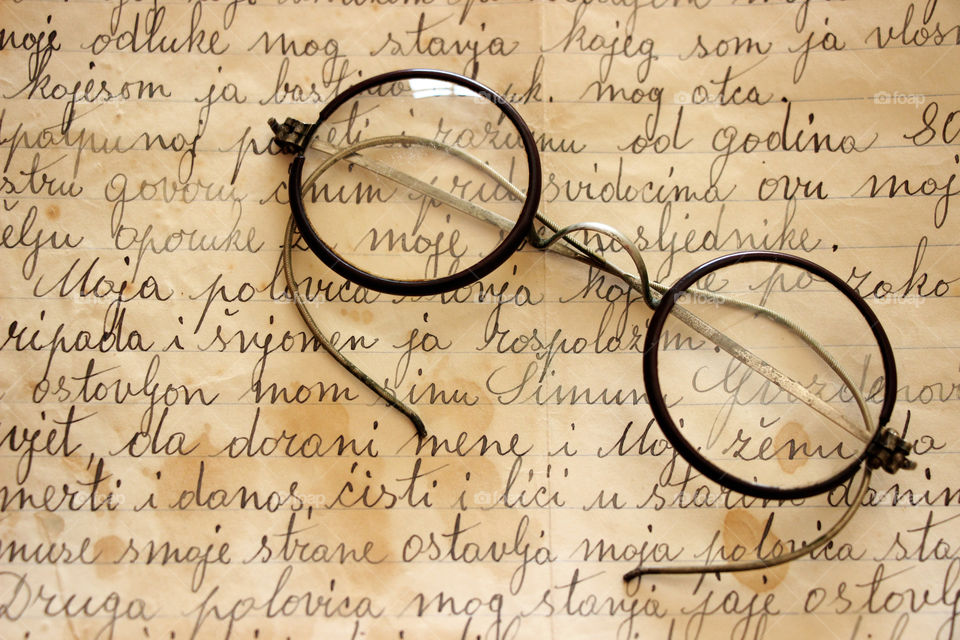 moje odluke mog stavja kojeg som ja vlosn
kojesom ja bastinio uk. mog otca.
potpunoj pameti i razumu od godina 80
govoru snim prid svidocima ovu moj
želju oporuke za moje nasljednike.
Moja polovica stovja koja po zoko
pripada i švjomen ja rospoložim.
ostovljon mom sinu Šimunu
uvjet, da dorani mene i Moju ženu do
smerti i danos, ćisti i lići u starim danim
muse smoje strane ostavlja moja polovica sta
Druga polovica mog stavja jaje ostovlj